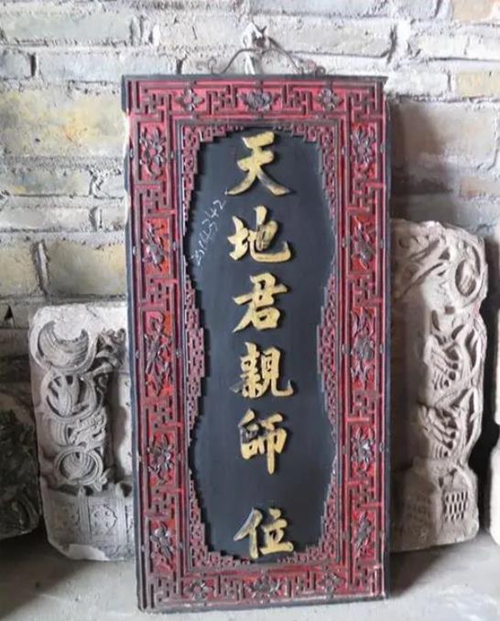 天地君親師位